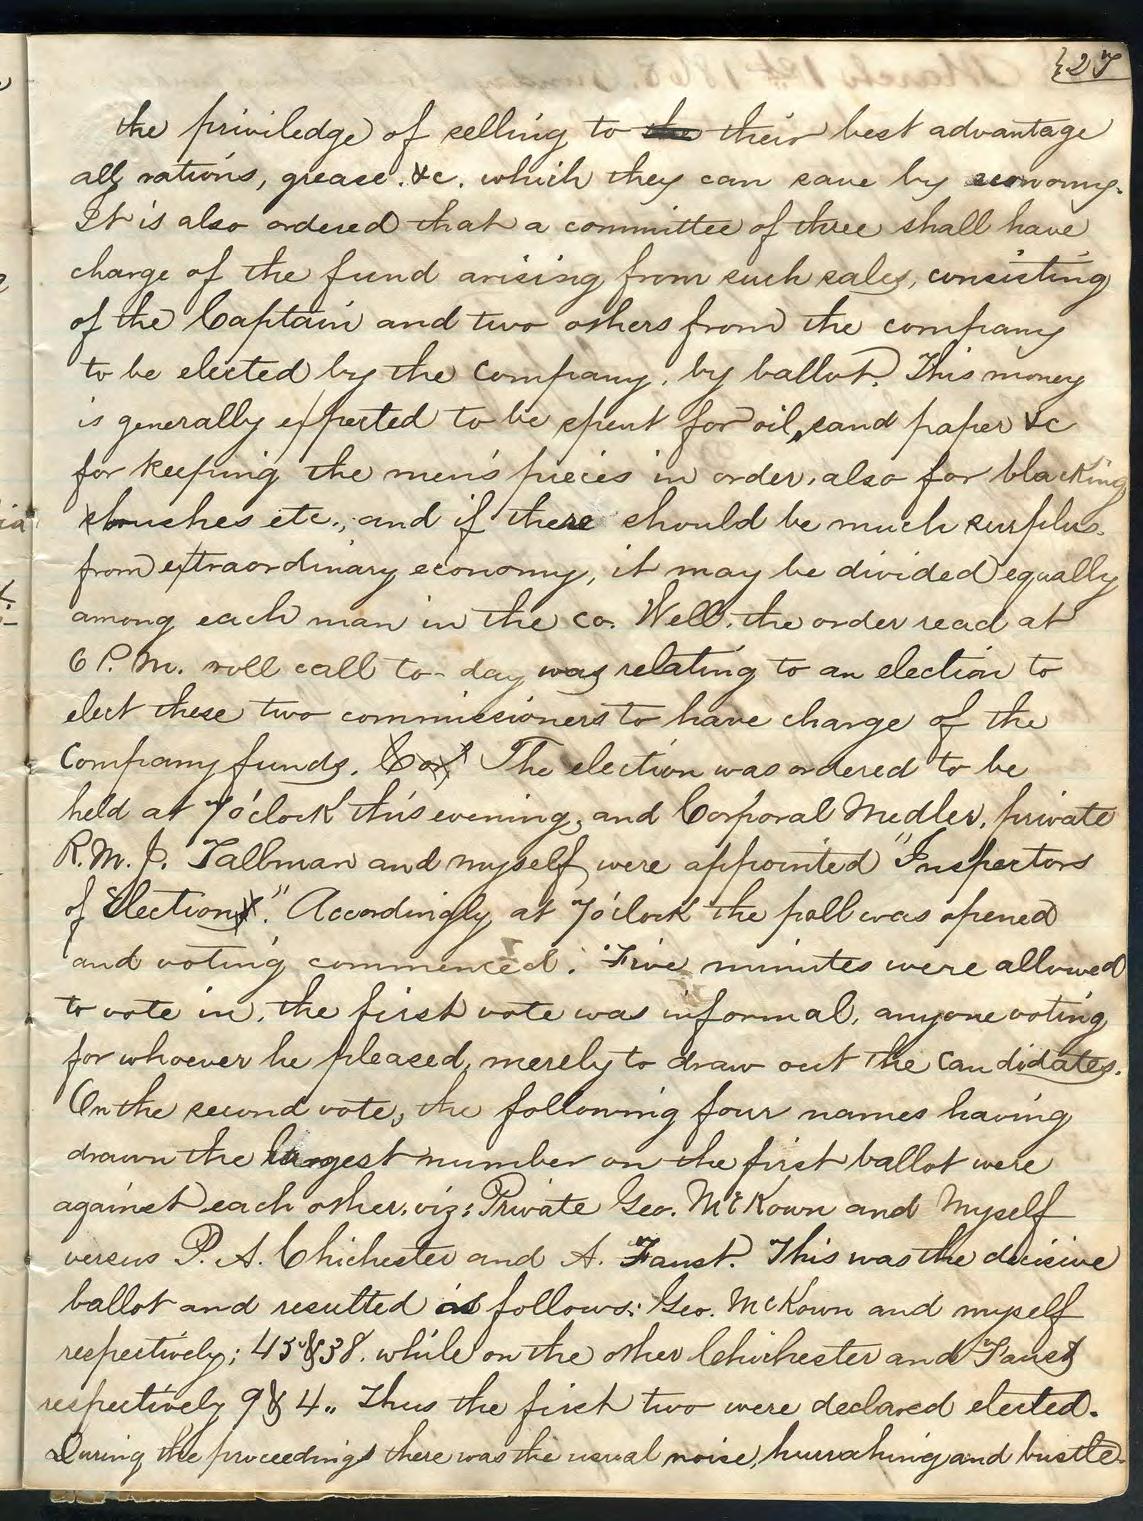 27
the priviledge of selling to the their best advantage
all rations, grease. &c. which they can save by economy.
It is also ordered that a committee of three shall have
charge of the fund arising from such sales, consisting
of the Captain and two others from the company
to be elected by the company, by ballot. This money
is generally expected to be spent for oil, sand paper &c
for keeping the men's pieces in order, also for blacking
brushes etc., and if there should be much surplus
from extraordinary economy, it may be divided equally
among each man in the co. Well, the order read at
6 P.M. roll call to-day was relating to an election to
elect these two commissioners to have charge of the
company funds. The election was ordered to be
held at 7 o'clock this evening, and Corporal Medler, private
R.M.J. Tallman and myself were appointed "Inspectors
of Election". Accordingly at 7 o'clock the poll was opened
and voting commenced. Five minutes were allowed
to vote in, the first vote was informal, anyone voting
for whoever he pleased, merely to draw out the candidates.
On the second vote, the following four names having
drawn the largest number on the first ballot were
against each other, viz: Private Geo. McKown and Myself
versus P. A. Chichester and A. Faust. This was the decisive
ballot and resulted as follows: Geo. McKown and myself
respectively; 45 & 38. while on the other Chichester and Faust
respectively 9 & 4.. Thus the first two were declared elected.
During the proceedings there was the usual noise, hurrahing and bustle.